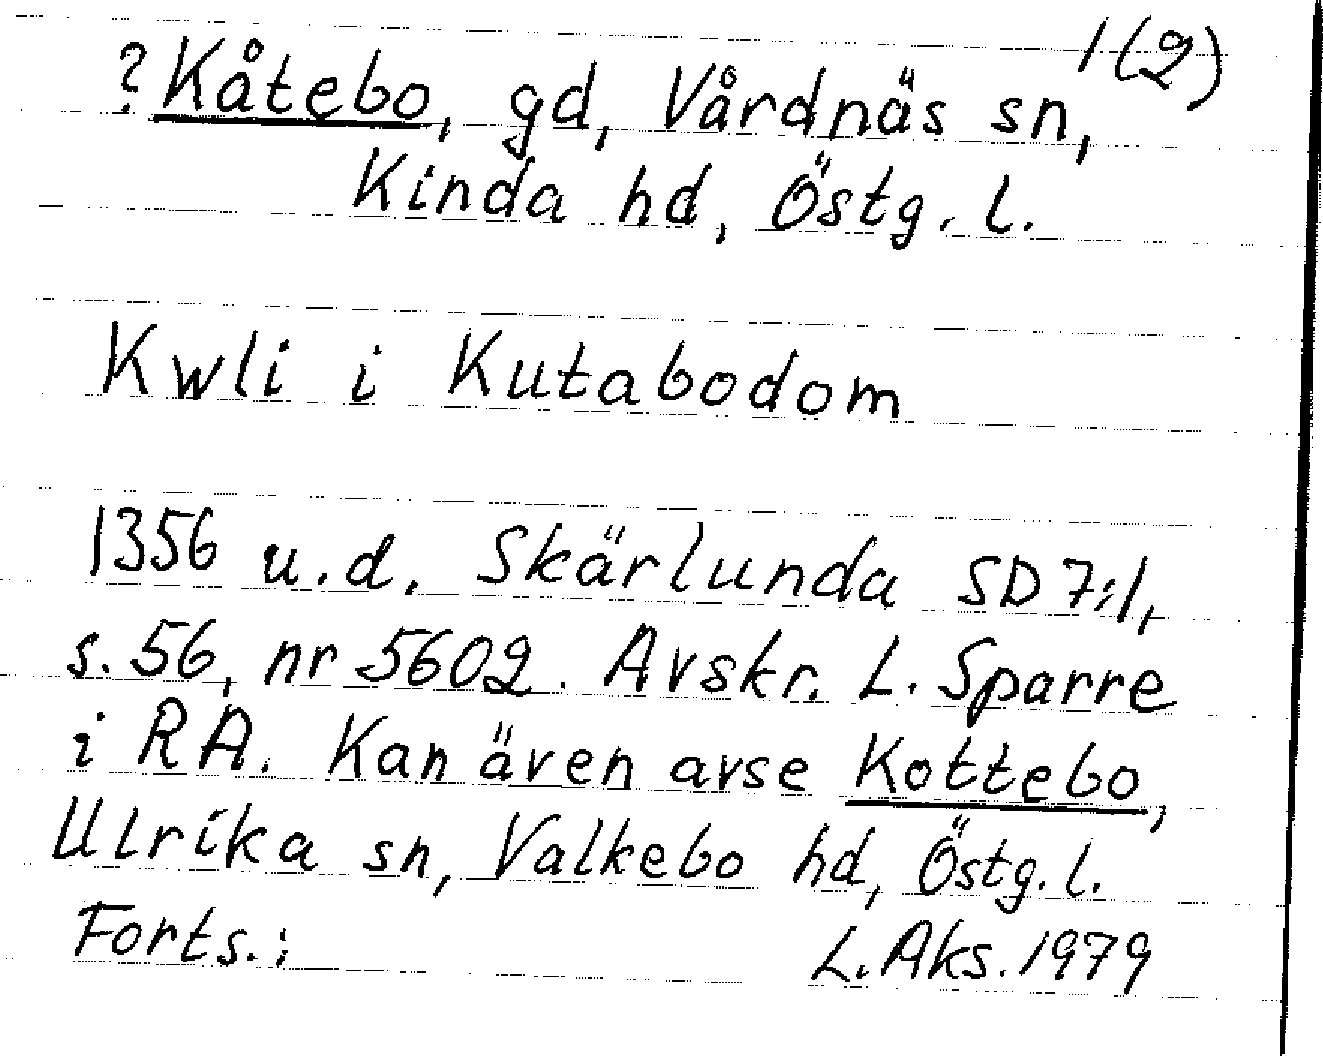 1(2)
?Kåtebo, gd, Vårdnäs sn,
Kinda hd, Östg. l.
Kwli i Kutabodom
1356 u.d. Skärlunda SD 7:1,
s. 56, nr 5602. Avskr. L. Sparre
i RA. Kan även avse Kottebo,
Ulrika sn, Valkebo hd, Östg. l.
Forts.: L. Aks. 1979